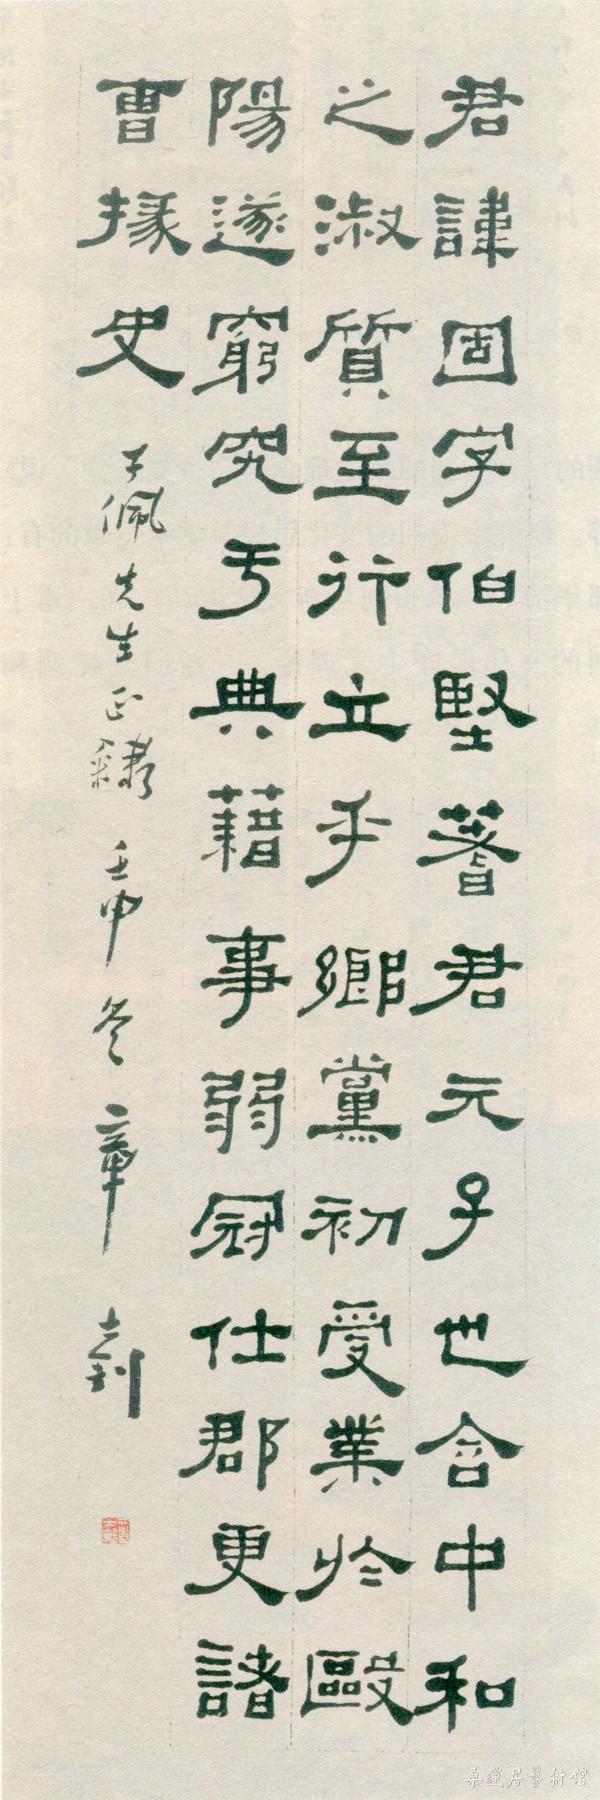 君諱固字伯堅蓍君元子也含中和
之淑質至行立乎鄉黨初受業於毆
陽遂窮究于典藉事弱冠仕郡更諸
曹掾史 子佩先生正隸 壬申冬 章士釗
桑蓮居藝術館